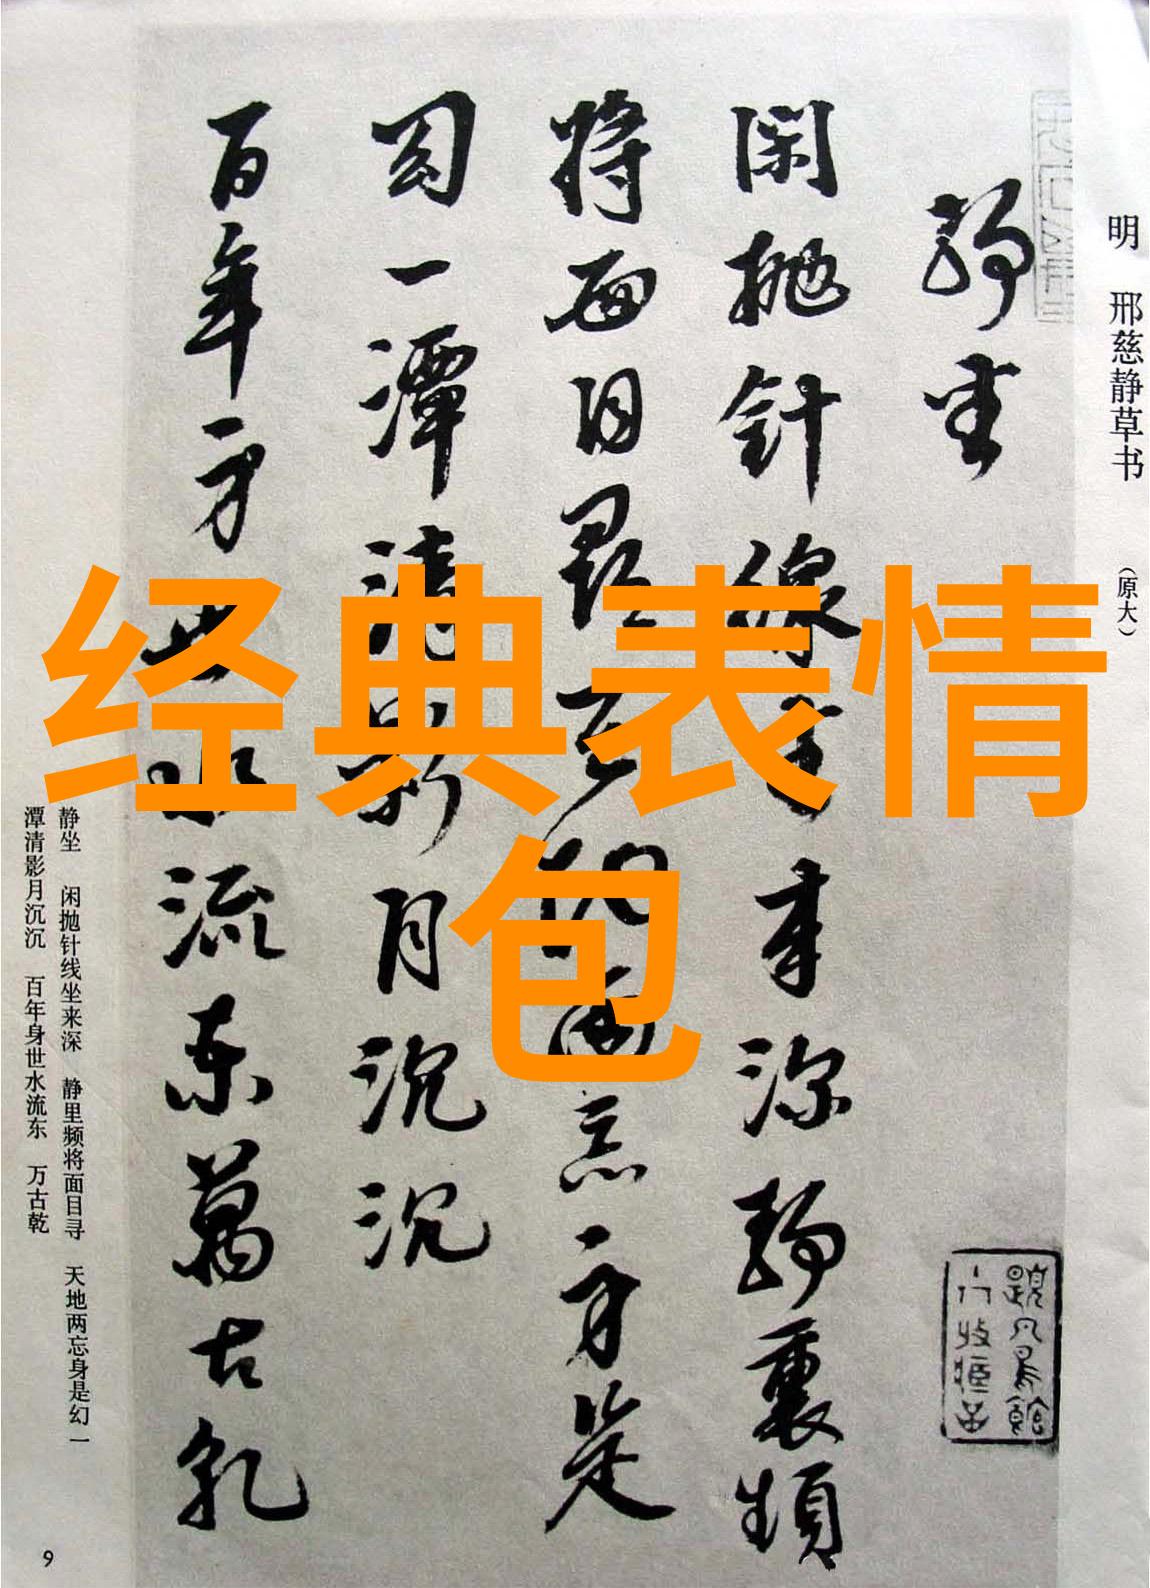 明 邢慈静草书 (原大)
静坐
闲抛针線坐来深静裏频
将面目寻天地两忘身是
幻一潭清影月沉沉
百年身世水流东萬古乾
静坐 闲抛针线坐来深 静里频将面目寻 天地两忘身是幻 一
潭清影月沉沉 百年身世水流东 万古乾
9
经典表情
包